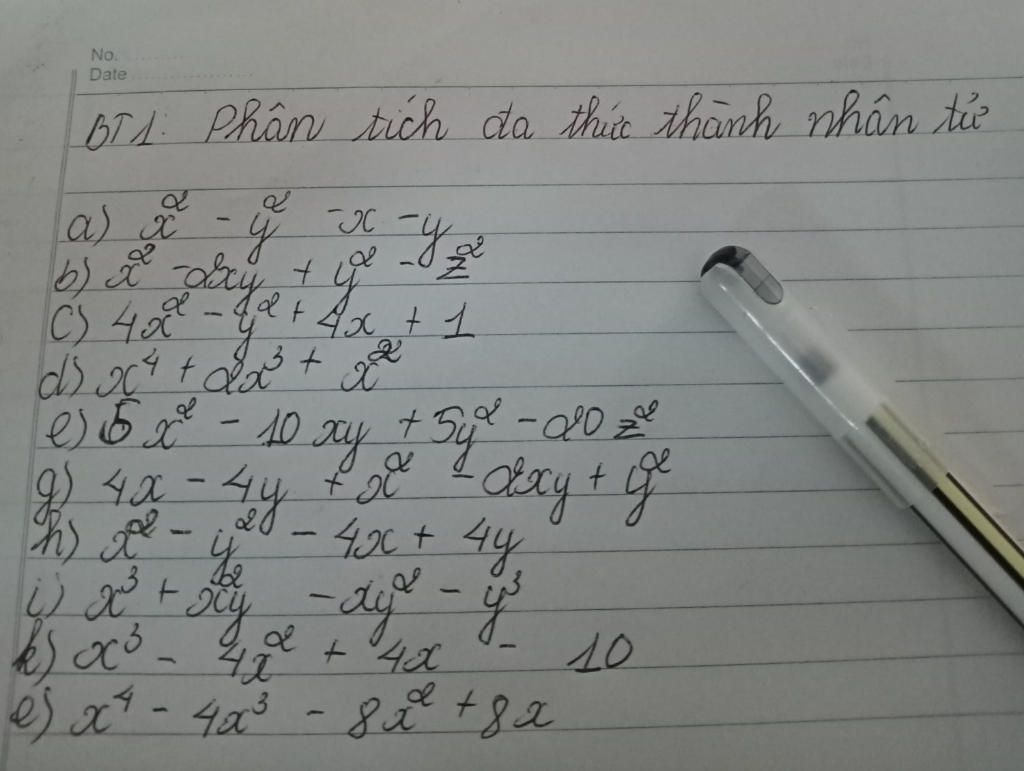 No.
Date
BT1: Phân tích đa thức thành nhân tử
a) x² - y² - x - y
b) x² - 2xy + y² - z²
c) 4x² - y² + 4x + 1
d) x⁴ + 2x³ + x²
e) 5x² - 10xy + 5y² - 20z²
g) 4x - 4y + x² - 2xy + y²
h) x² - y² - 4x + 4y
i) x³ + x²y - xy² - y³
k) x³ - 4x² + 4x - 10
e) x⁴ - 4x³ - 8x² + 8x